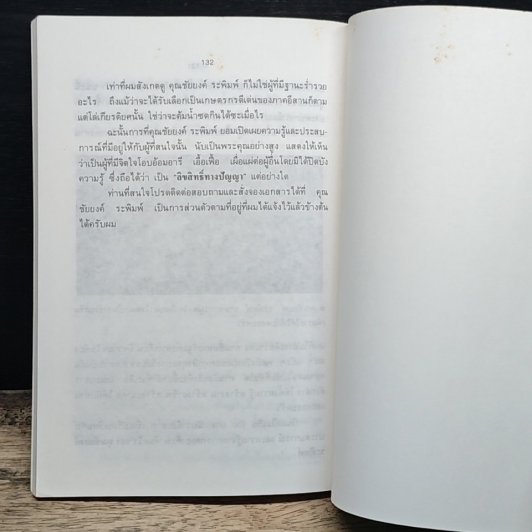 132
เท่าที่ผมสังเกตดู คุณชัยยงค์ ระพิมพ์ ก็ไม่ใช่ผู้ที่มีฐานะร่ำรวย
อะไร ถึงแม้ว่าจะได้รับเลือกเป็นเกษตรกรดีเด่นของภาคอีสานก็ตาม
แต่โล่เกียรติยศนั้น ใช่ว่าจะต้มน้ำซดกินได้ซะเมื่อไร
ฉะนั้นการที่คุณชัยยงค์ ระพิมพ์ ยอมเปิดเผยความรู้และประสบ-
การณ์ที่มีอยู่ให้กับผู้ที่สนใจนั้น นับเป็นพระคุณอย่างสูง แสดงให้เห็น
ว่าเป็นผู้ที่มีจิตใจโอบอ้อมอารี เอื้อเฟื้อ เผื่อแผ่ต่อผู้อื่นโดยมิได้ปิดบัง
ความรู้ ซึ่งถือได้ว่า เป็น "ลิขสิทธิ์ทางปัญญา" แต่อย่างใด
ท่านที่สนใจโปรดติดต่อสอบถามและสั่งจองเอกสารได้ที่ คุณ
ชัยยงค์ ระพิมพ์ เป็นการส่วนตัวตามที่อยู่ที่ผมได้แจ้งไว้แล้วข้างต้น
ได้ครับผม